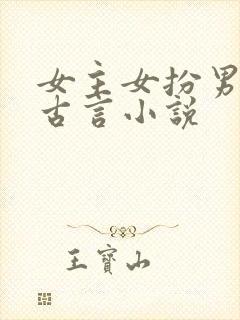 女主女扮男
古言小說
王寶山